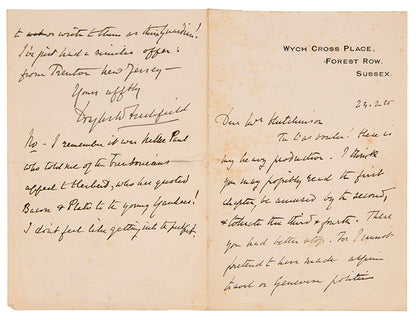 WYCH CROSS PLACE,
FOREST ROW,
SUSSEX.
23.2.25
Dear Mr Hutchinson
Here is
my heavy production. I think
you may possibly read the first
chapter, be amused by the second,
& tolerate the third & fourth. There
you had better stop. For I cannot
pretend to have made
or Genevese politics
to or write to them as their Guardian!
I've just had a similar offer:
from Trenton New Jersey —
Yours
No - I remember it was Paul
who told me of the Trentonians
appeal to Herbert, who has quoted
Bacon & Plato to the young Yankees!
I don't feel like getting into the pulpit.